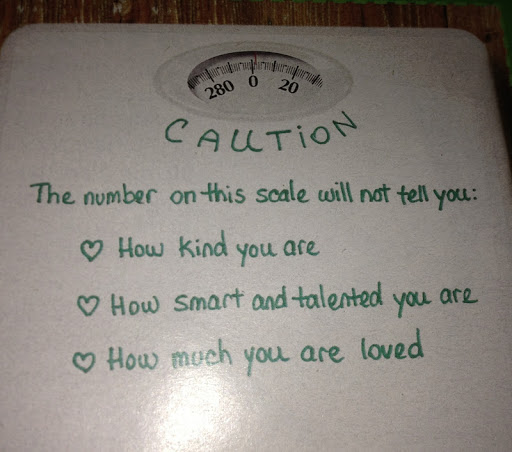 280 0 20
CAUTION
The number on this scale will not tell you:
♡ How kind you are
♡ How smart and talented you are
♡ How much you are loved